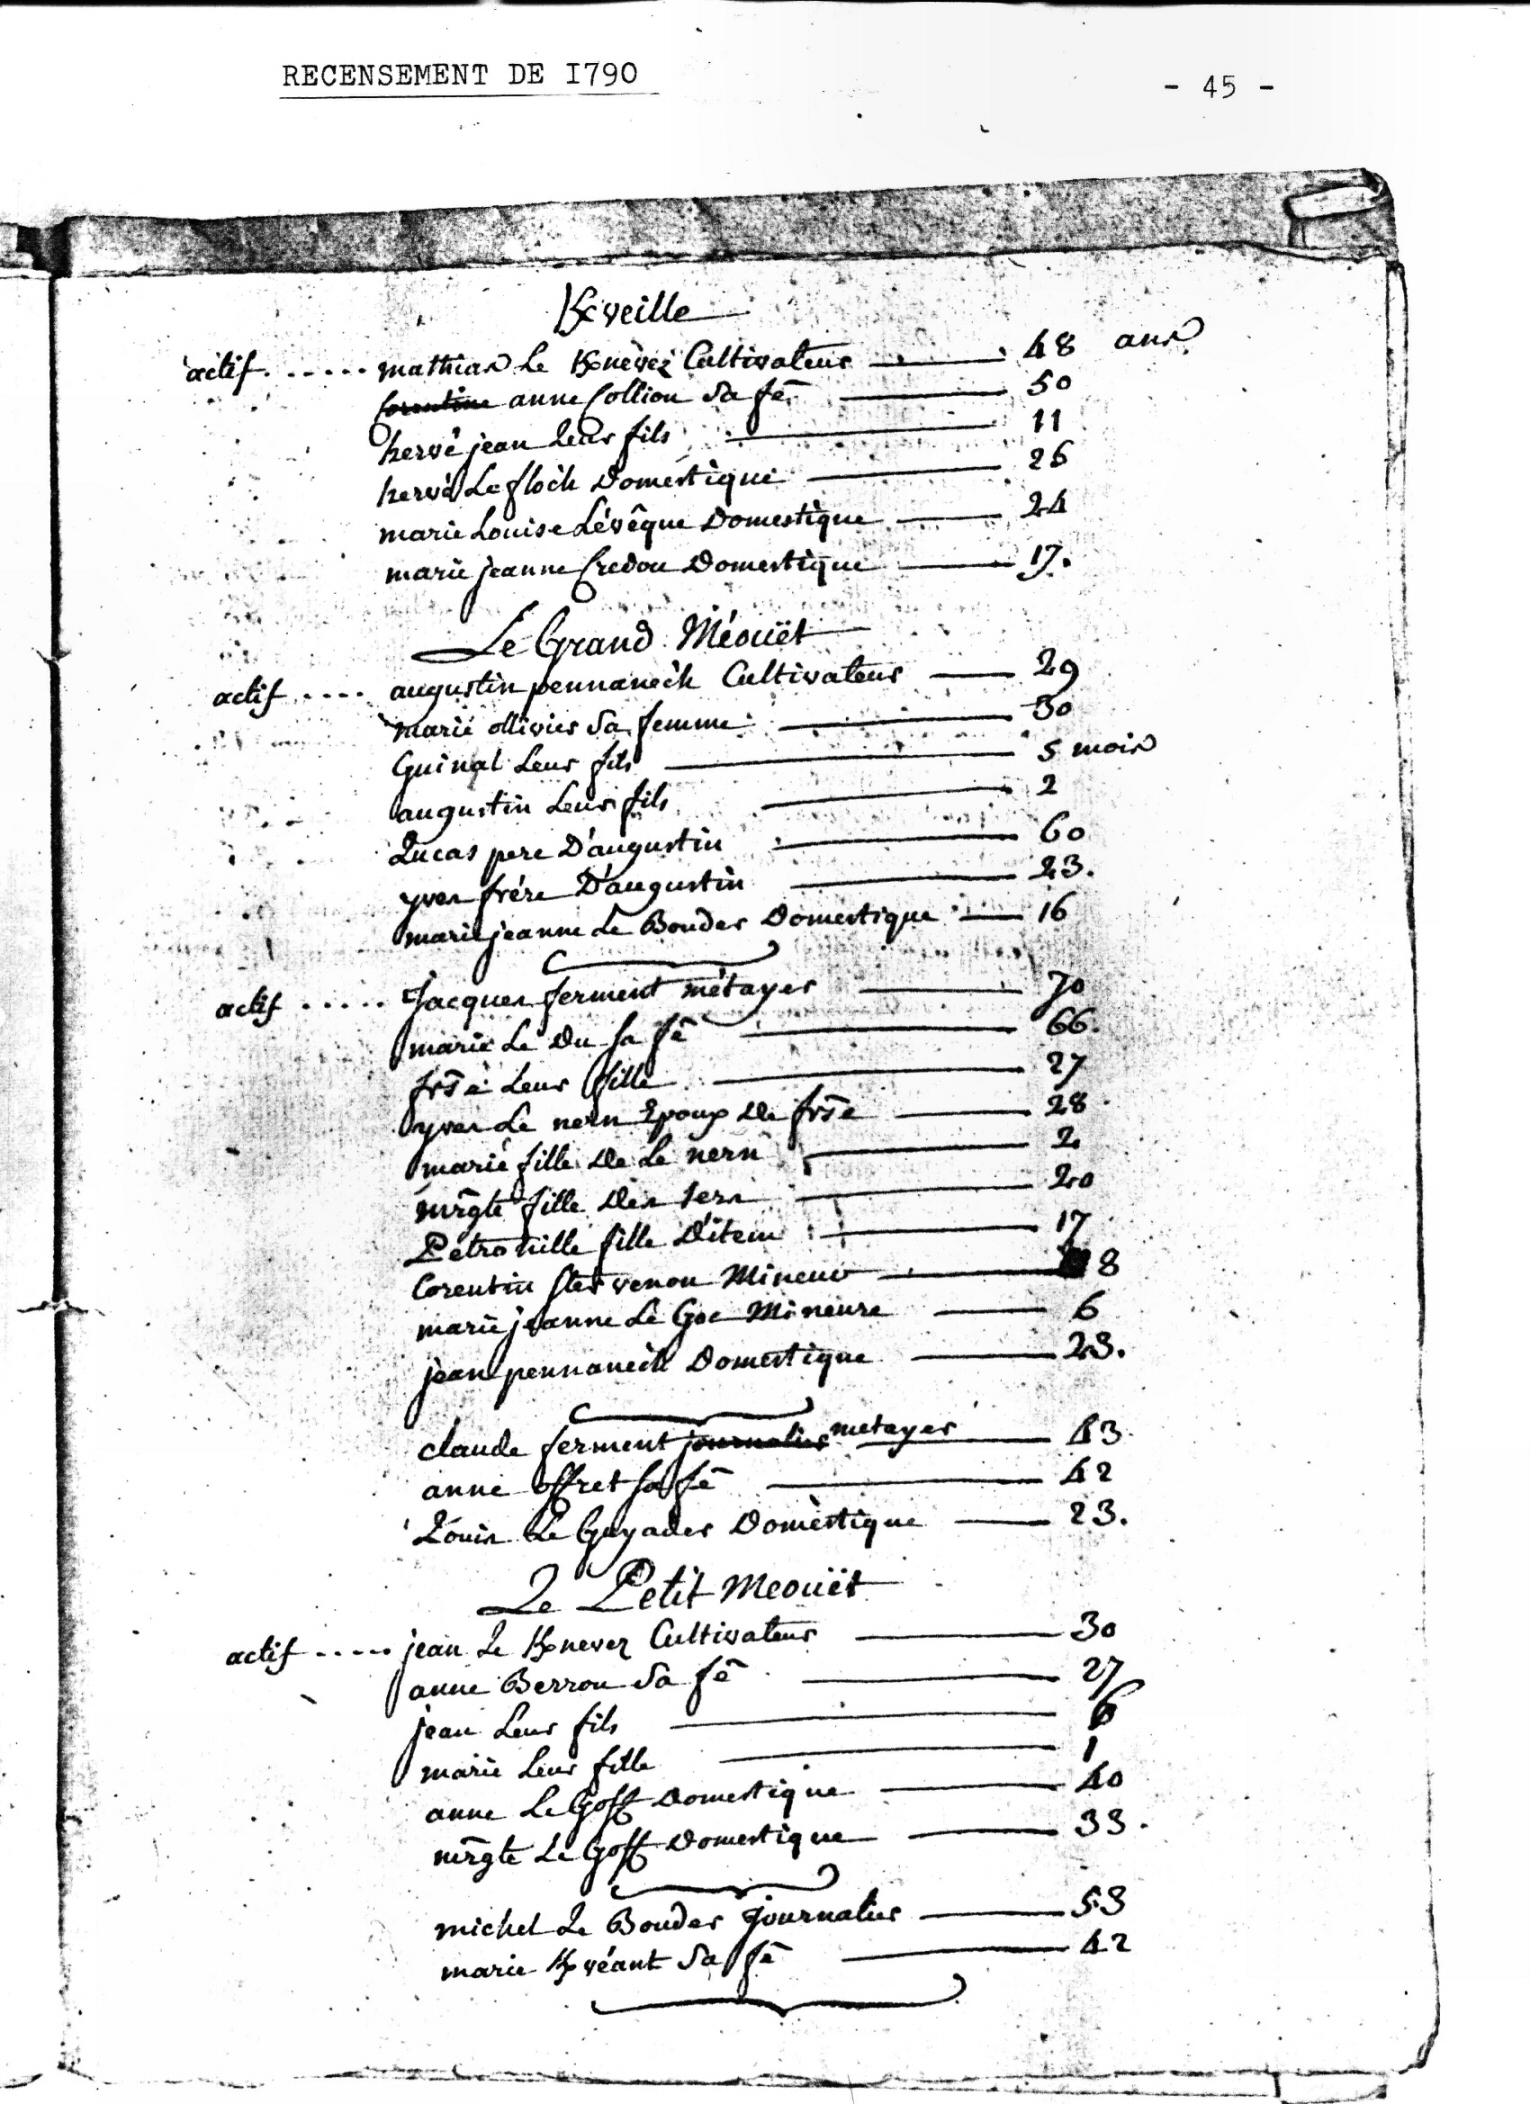 RECENSEMENT DE I790
- 45 -
K/veille
actif ..... mathias Le K/nèvez Cultivateur 48 ans
Corentine anne Colliou Sa fē 50
hervé jean Leur fils 11
hervé Le floch Domestique 26
marie Louise Lévêque Domestique 24
marie jeanne Credou Domestique 17.
Le Grand Méouët
actif .... augustin pennanech Cultivateur 29
marie ollivier Sa femme 30
Guinal Leur fils 5 mois
augustin Leur fils 2
Lucas pere D'augustin 60
yves frére D'augustin 23.
marie jeanne Le Bouder Domestique 16
actif ..... Jacques ferment métayer 70
marie Le Du sa fē 66.
frse Leur fille 27
yves Le nern Epoux De frse 28
marie fille De Le nern 2
mrgte fille Des 1ers 20
Pétronille fille D'item 17
Corentin Stervenou Mineur 8
marie jeanne Le Goc Mineure 6
jean pennanech Domestique 23.
claude ferment journalier metayer 43
anne offret sa fē 42
Louis Le Guyader Domèstique 23.
Le Petit Meouët
actif ..... jean Le K/nevez Cultivateur 30
anne Berrou Sa fē 27
jean Leur fils 6
marie Leur fille 1
anne Le Goff Domestique 40
mrgte Le Goff Domestique 33.
michel Le Bouder Journalier 53
marie K/véant Sa fē 42